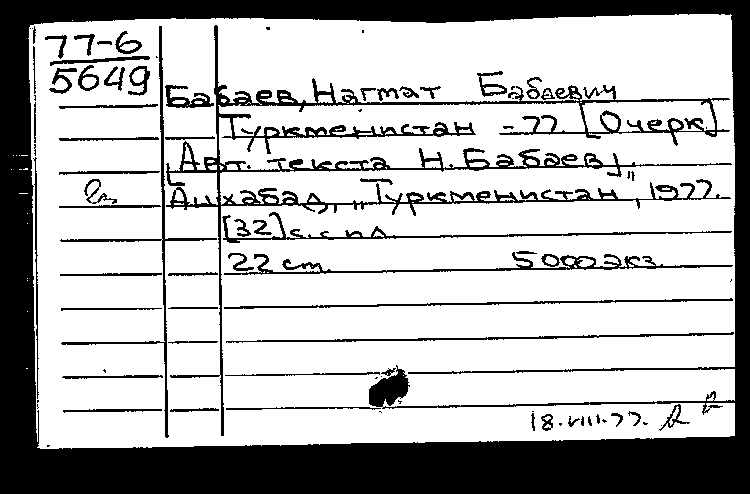 77-6
5649
Бабаев, Нагмат Бабаевич
Туркменистан - 77. [Очерк]
[Авт. текста Н. Бабаев].
Ашхабад, „Туркменистан", 1977.
[32] с. с ил.
22 см. 5000 экз.
18.VIII.77.